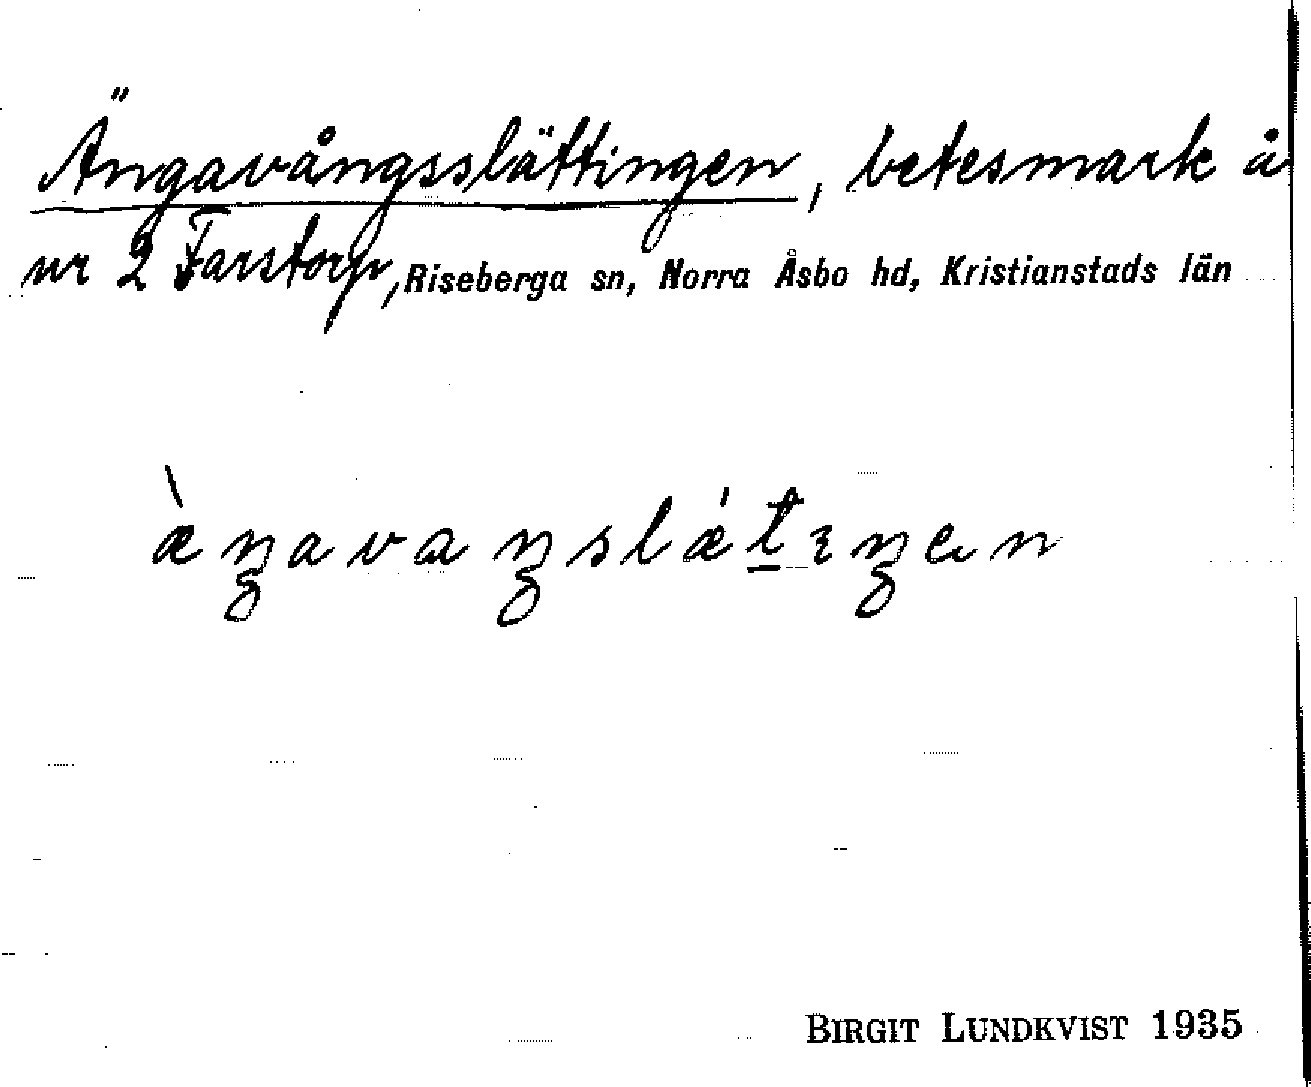 Ängavångsslättingen, betesmark å
nr 2 Farstorp, Riseberga sn, Norra Åsbo hd, Kristianstads län
æ̀ŋavaŋslǽt̲ɪŋen
BIRGIT LUNDKVIST 1935